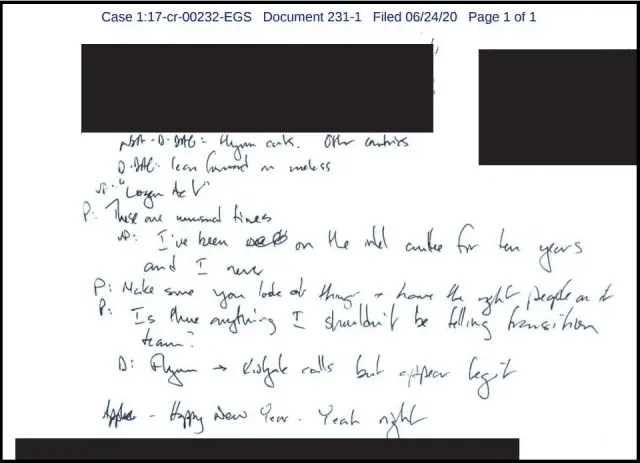 Case 1:17-cr-00232-EGS Document 231-1 Filed 06/24/20 Page 1 of 1
NSA-D-DAG = Flynn cuts. Other countries
D-DAG: lean forward on unclass
VP: "Logan Act"
P: These are unusual times
VP: I've been on the intel cmte for ten years
and I never
P: Make sure you look at things + have the right people on it
P: Is there anything I shouldn't be telling transition
team?
D: Flynn → Kislyak calls but appear legit
Happy New Year. Yeah right